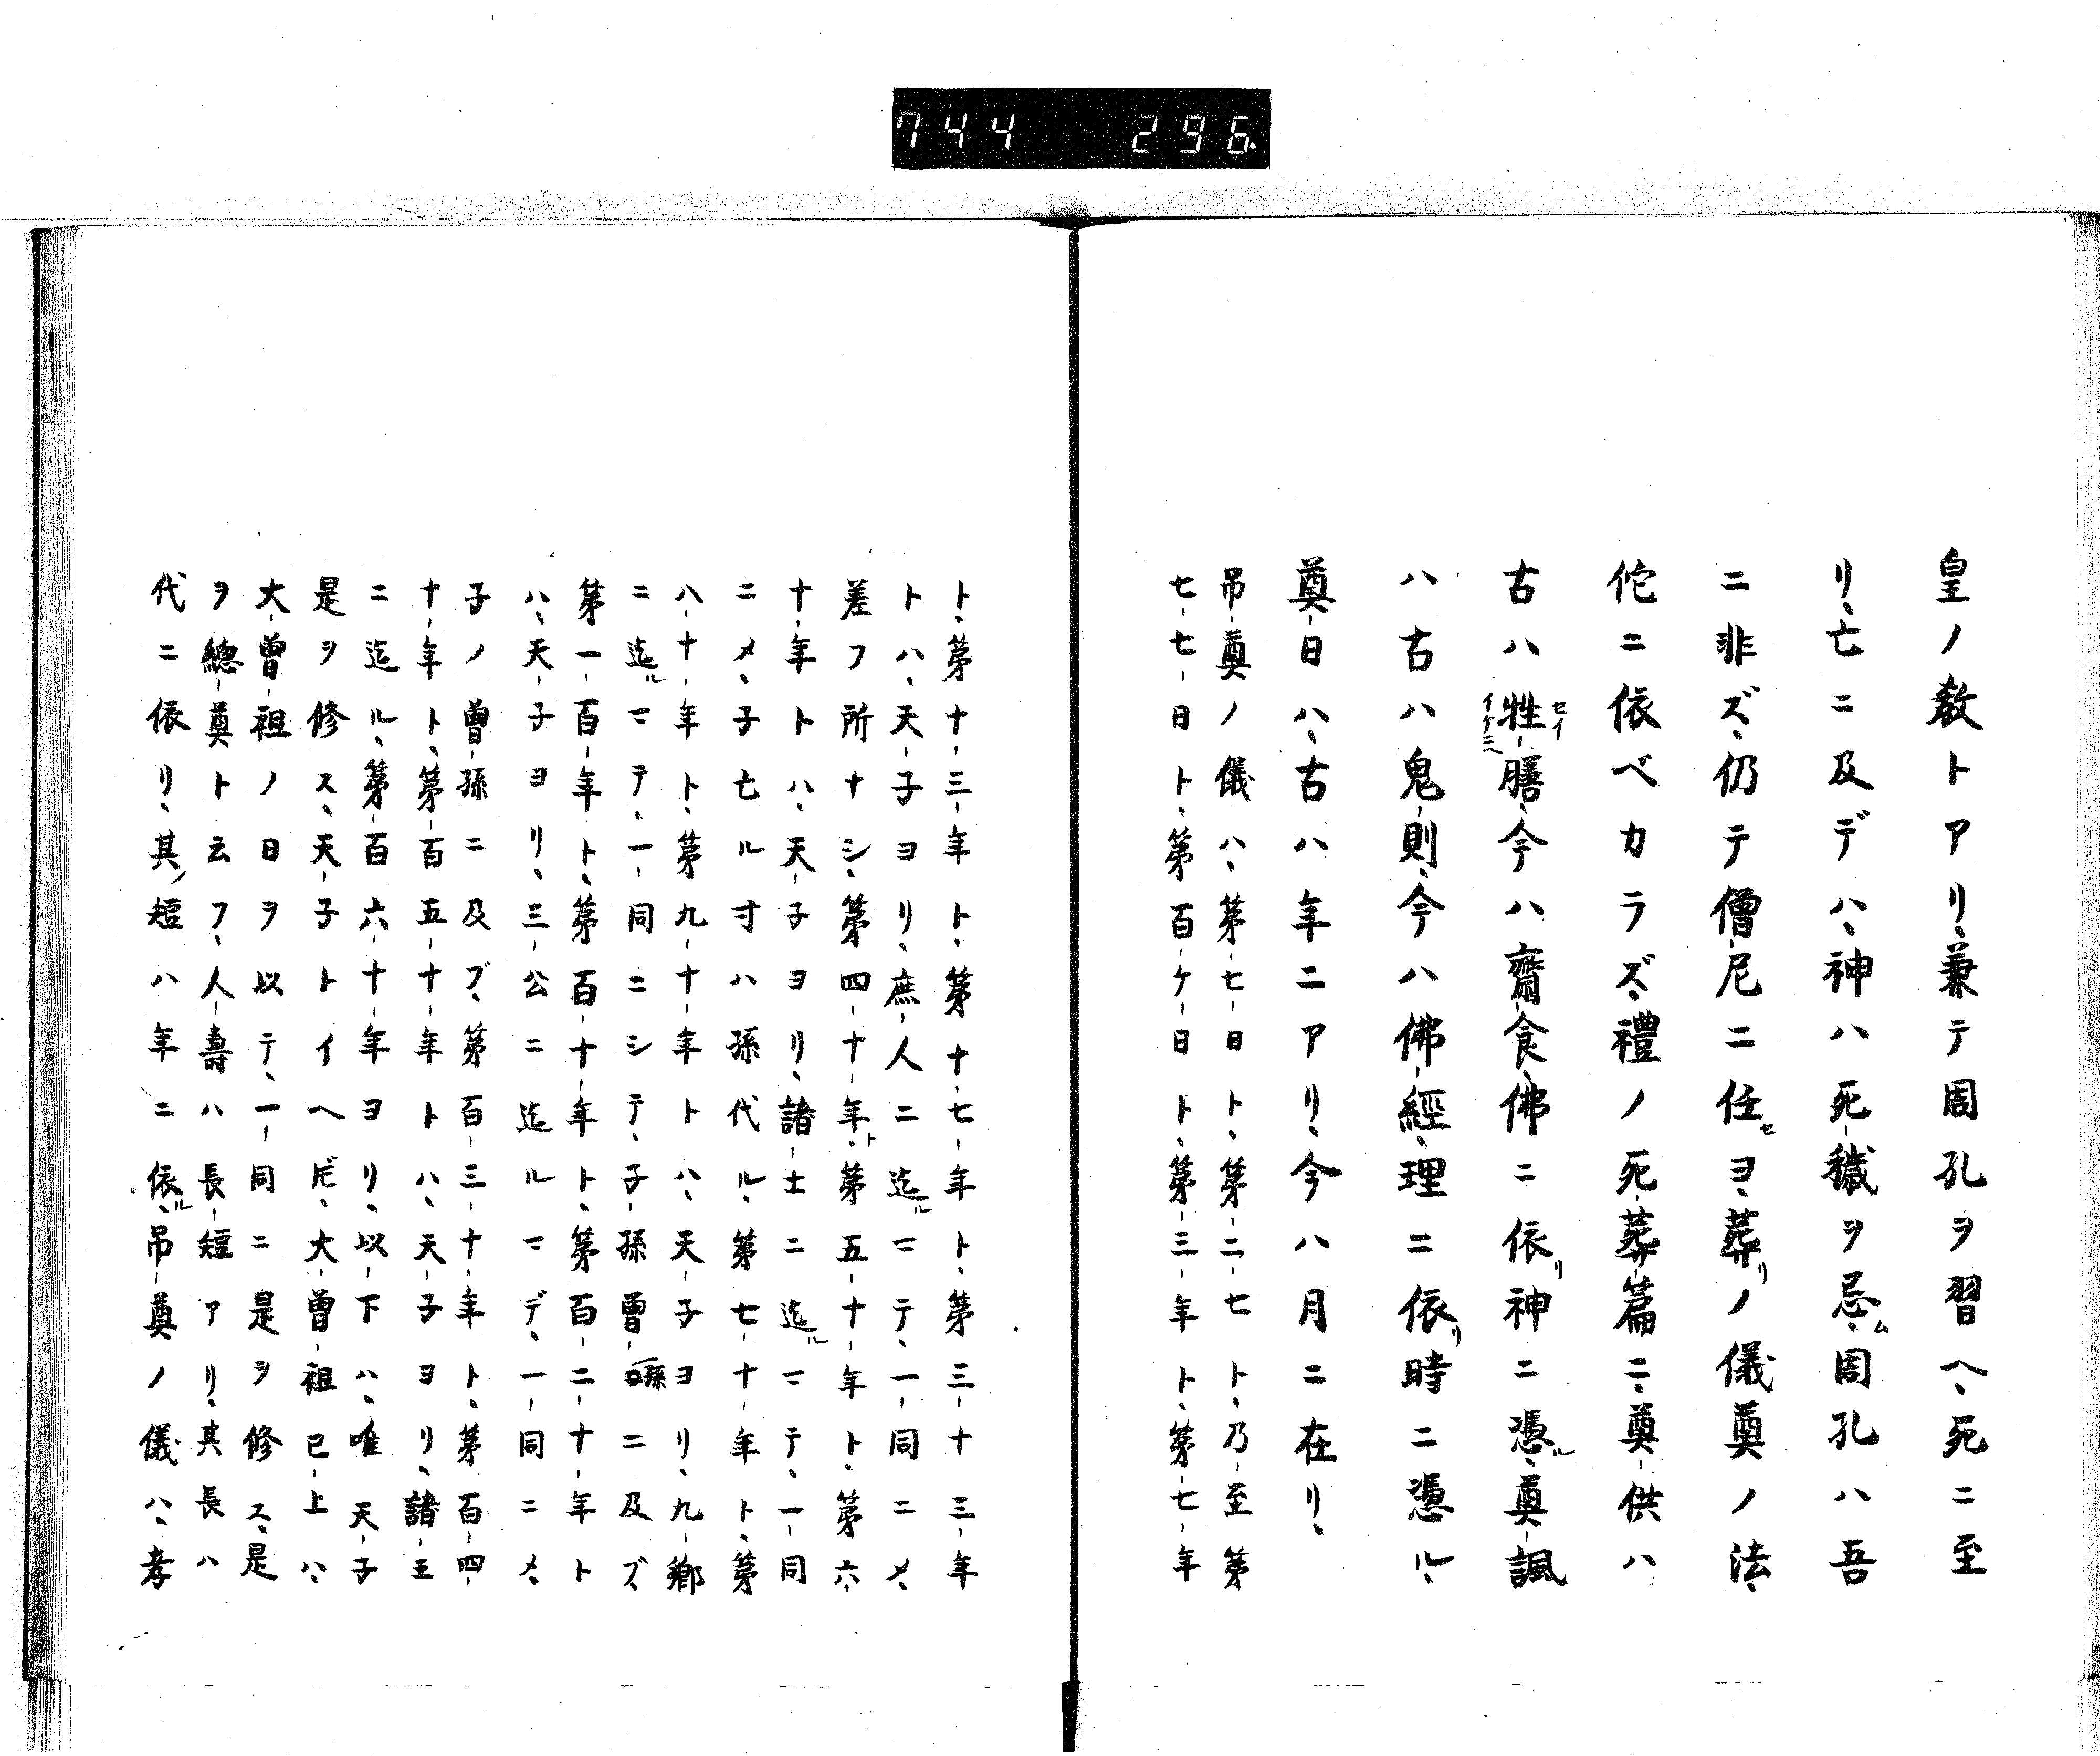 744 296
皇ノ教トアリ、兼テ周孔ヲ習ヘ、死ニ至
リ、亡ニ及デハ、神ハ死穢ヲ忌ム、周孔ハ吾
ニ非ズ、仍テ僧尼ニ任セヨ、葬リノ儀奠ノ法、
佗ニ依ベカラズ、禮ノ死葬篇ニ、奠供ハ
古ハ牲膳、今ハ齋食、佛ニ依リ神ニ憑ル、奠諷
セイ
イケミ
ハ古ハ鬼則、今ハ佛經、理ニ依リ時ニ憑ル、
奠日ハ、古ハ年ニアリ、今ハ月ニ在リ、
吊奠ノ儀ハ、第七日ト、第二七ト、乃至第
七七日ト、第百ケ日ト、第三年ト、第七年
ト、第十三年ト、第十七年ト、第三十三年
トハ、天子ヨリ、庶人ニ迄ルマテ、一同ニメ、
差フ所ナシ、第四十年ト、第五十年ト、第六
十年トハ、天子ヨリ、諸士ニ迄ルマテ、一同
ニメ、子七ル寸ハ孫代ル、第七十年ト、第
八十年ト、第九十年トハ、天子ヨリ、九鄕
ニ迄ルマテ、一同ニシテ、子孫曾孫ニ及ズ
第一百年ト、第百十年ト、第百二十年ト
ハ、天子ヨリ、三公ニ迄ルマデ、一同ニメ、
子ノ曾孫ニ及ブ、第百三十年ト、第百四
十年ト、第百五十年トハ、天子ヨリ、諸王
ニ迄ル、第百六十年ヨリ、以下ハ、唯天子
是ヲ修ス、天子トイヘ𪜈、大曾祖已上ハ、
大曾祖ノ日ヲ以テ、一同ニ是ヲ修ス、是
ヲ總奠ト云フ、人壽ハ長短アリ、其長ハ
代ニ依リ、其ノ短ハ年ニ依ル、吊奠ノ儀ハ、孝